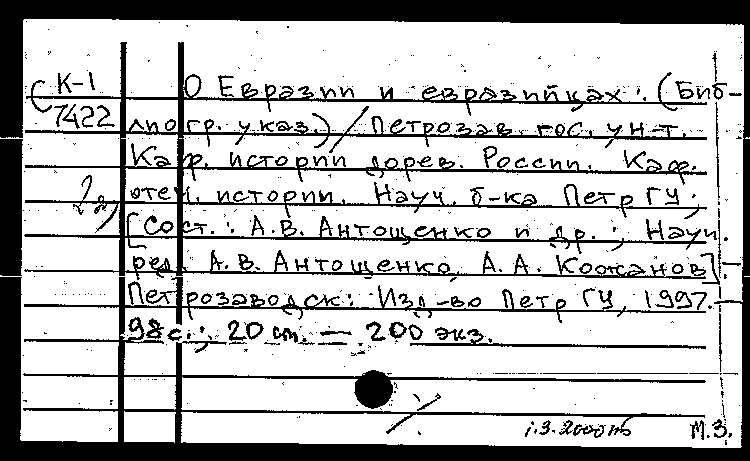 С К-1
7422
О Евразии и евразийцах: (Биб-
лиогр. указ.) / Петрозав. гос. ун-т.
Каф. истории дорев. России. Каф.
отеч. истории. Науч. б-ка Петр ГУ;
[Сост.: А.В. Антощенко и др.; Науч.
ред. А.В. Антощенко, А.А. Кожанов].
Петрозаводск: Изд-во Петр ГУ, 1997. —
98 с.; 20 см. — 200 экз.
М.З.